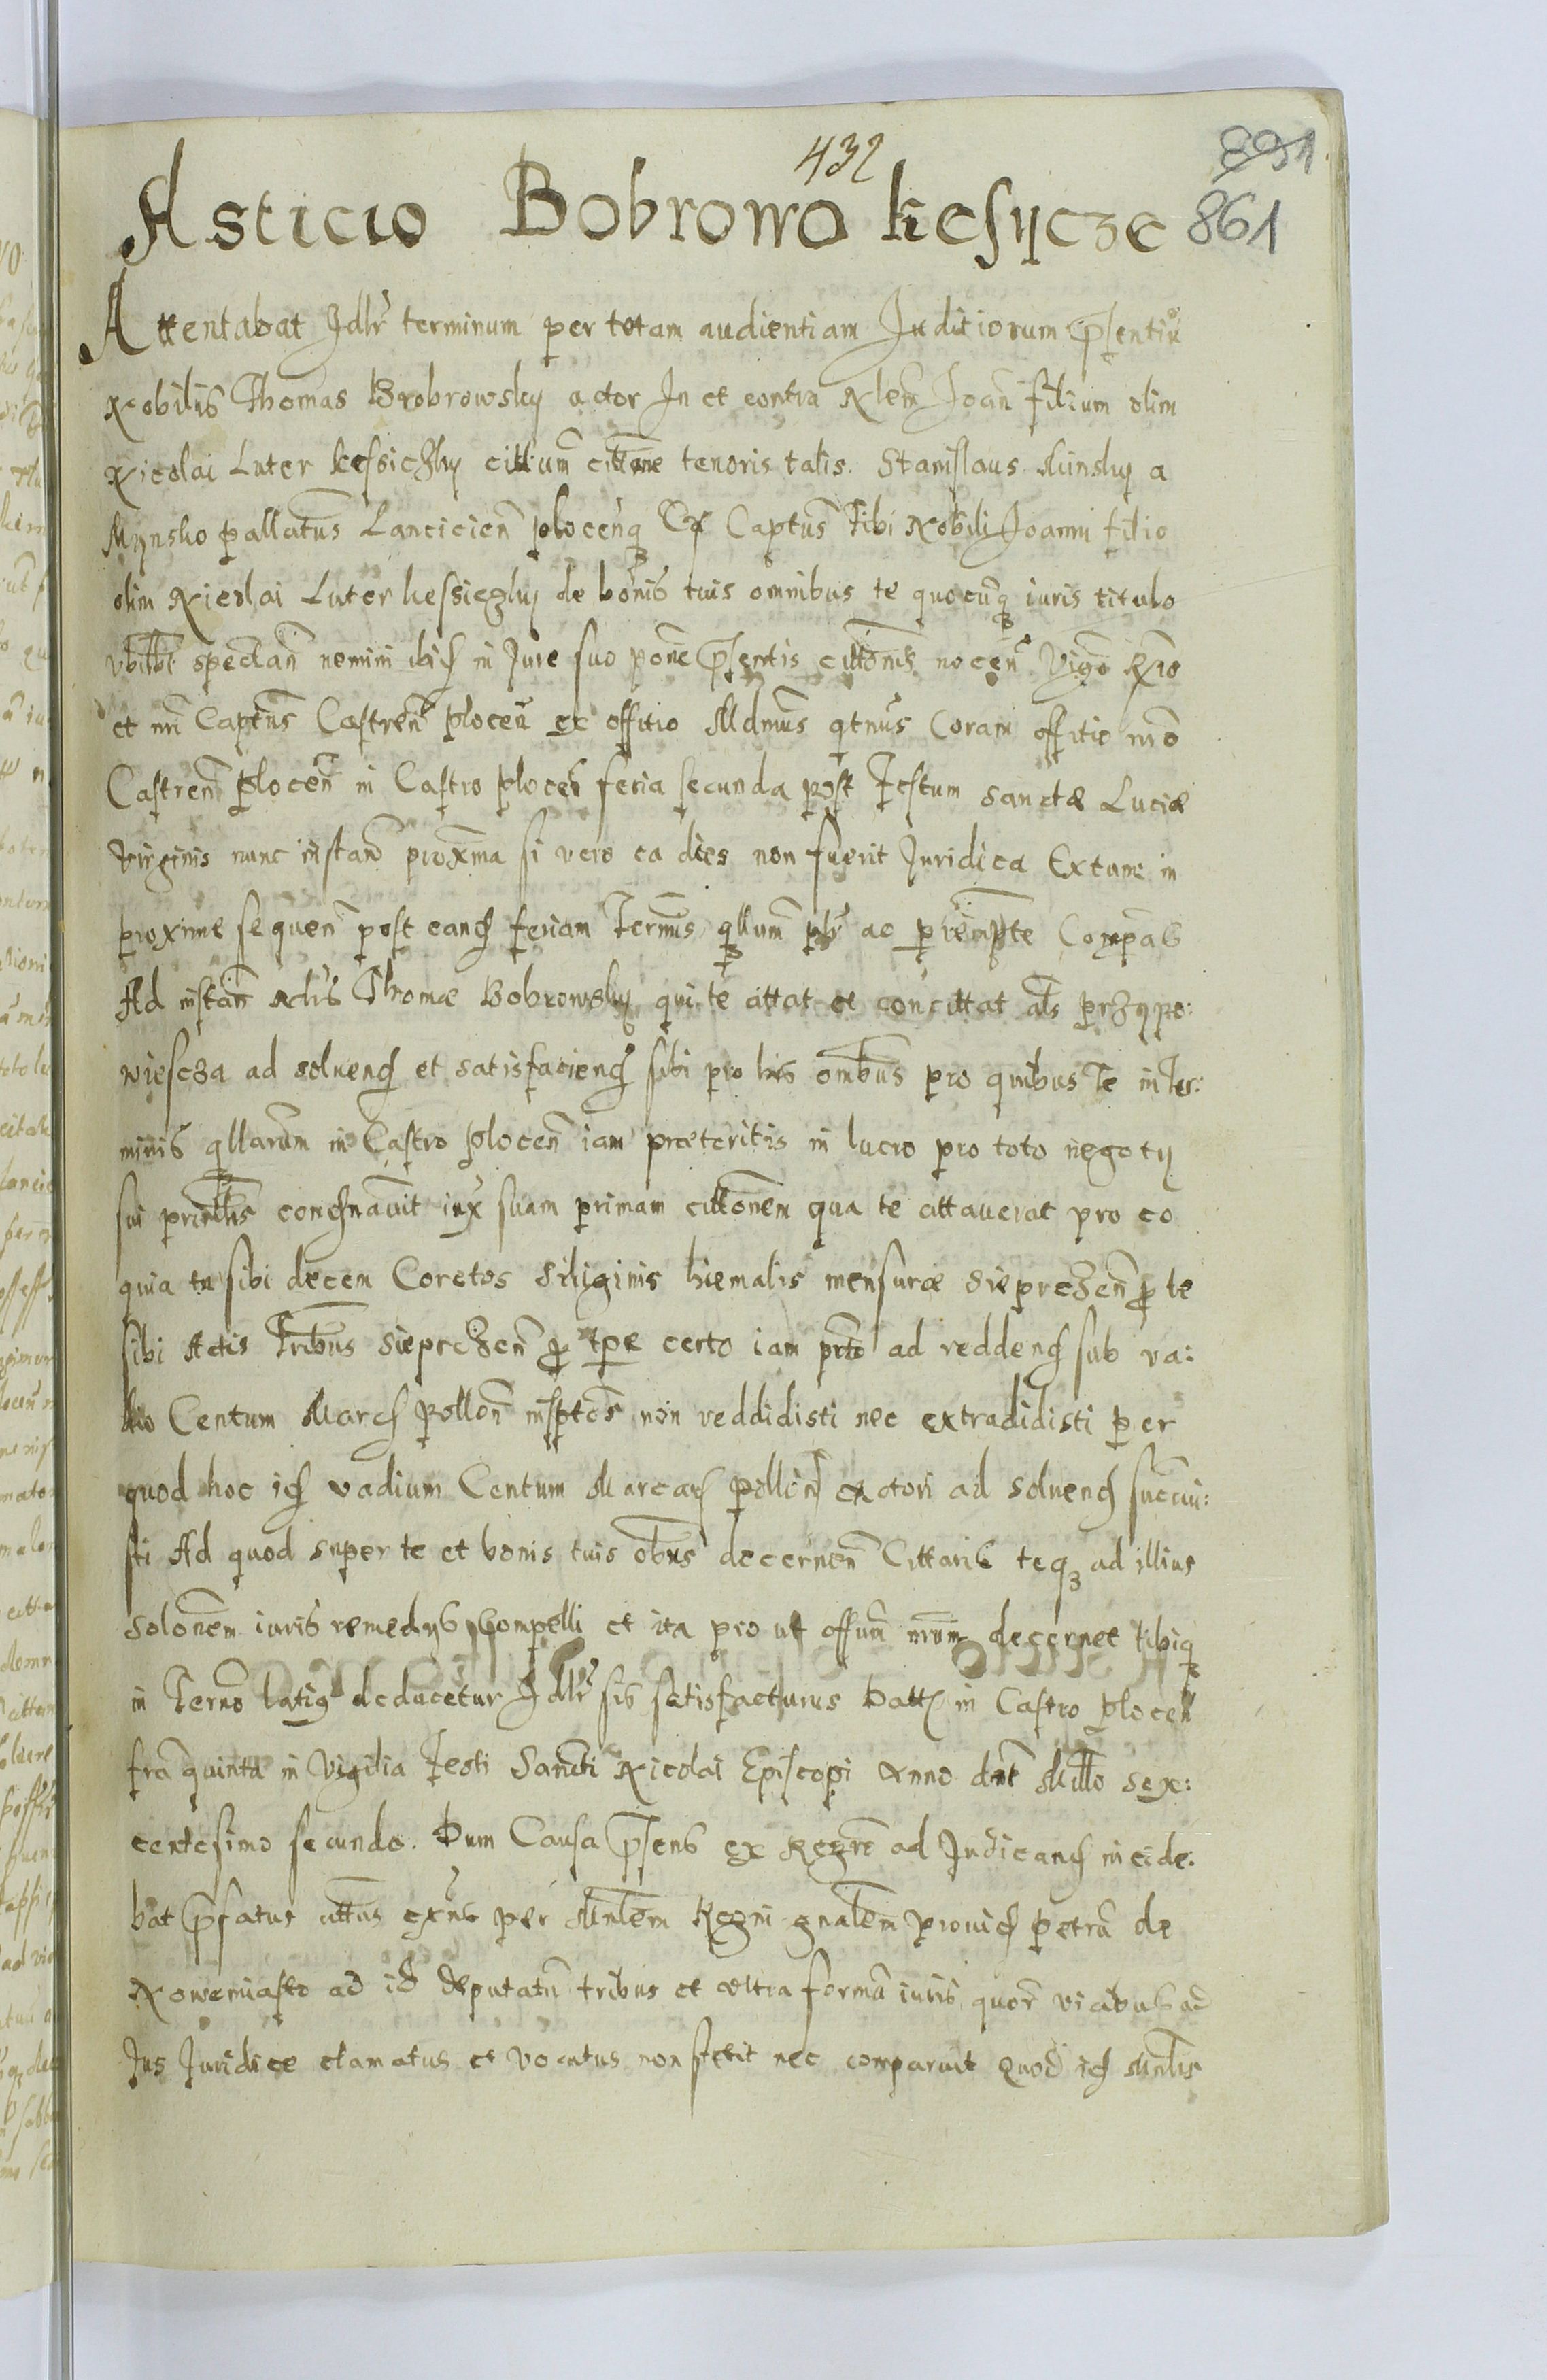 432
891
Asticio Bobrowo kesÿcze 861
Attentabat Jdlr terminum per totam audientiam Juditiorum p̄sentiū
Nobilis Thomas Brobrowsky actor In et contra Nlem Joan̄ filium olim
Nicolai Luter kessiczky cittum cittōne tenoris talis. Stanislaus Minsky a
Mÿnsko pallatūs Lancicien̄ plocen̄q3 Captūs Tibi Nobili Joanni filio
olim Nicolai Luter kessiczky de bonis tuis omnibus te quocunq3 iuris titulo
spectan̄ nemini in Jure suo p̄sentis cittōnis nocen̄ Vigō
et Captūs Castren̄ plocen̄ ex offitio Mdmus qtnus Coram offitio nrō
Castren̄ plocen̄ in Castro plocen̄ feria secunda post Festum sanctæ Luciæ
Virginis nunc instan̄ proxma si vero ea dies non fuerit Juridica Extunc in
proxime sequen̄ post feriam Termis qllum ac p̄rempte Compās
Ad instan̄ Thomæ Bobrowsky qui te cittat et concittat als przypo:
wiescza ad soluen et satisfacien sibi pro his ombus pro quibus Te in Ter:
minis qllarum in Castro plocen̄ iam præteritis in lucro pro toto negotÿ
sui conānauit iux suam primam cittōnem qua te cittauerat pro eo
quia tu sibi decem Coretos siliginis hiemalis mensuræ sieprczen̄ p̄ te
sibi Actis Tribus sieprczen̄ p̄ tpe certo iam prto ad redden sub va:
dio Centum Marc pollon̄ non reddidisti nec extradidisti per
quod hoc id vadium Centum Marcar actori ad soluen succu:
sti Ad quod super te et bonis tuis obus decernen̄ Cittaris teq3 ad illius
solōnem iuris remedÿs Compelli et ita pro ut offum nrum decernet tibiq
in Termo latiq deducetur Jdlr sis satisfacturus Datt in Castro plocen̄
frā quinta in Vigilia Festi Sancti Nicolai Episcopi Anno dni Millo sex:
centesimo secundo. Dum Causa p̄sens ex Regrē ad Judican incide:
bat p̄fatus cittus extunc per Minlem Regni gnalem prouid petrū de
Nowemiasto ad id deputatū tribus et ultra formā iuris quor vicibus ad
Jus Juridice clamatus et vocatus non stetit nec comparuit Quod id Minlis